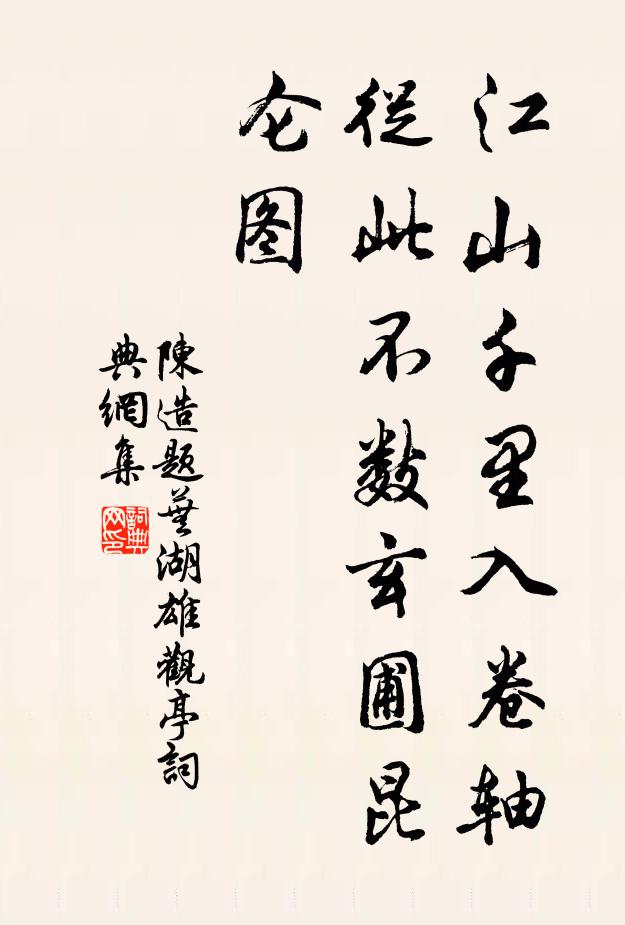 江山千里入卷轴
從此不数玄圃昆
仑图
陳造題蕪湖雄觀亭詞
典網集
詞典
网印